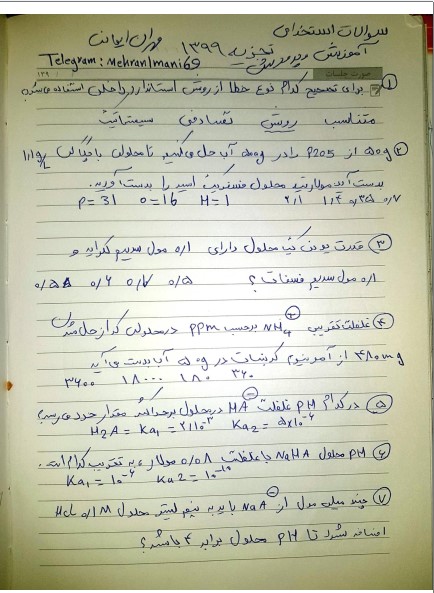 سوالات استخدامی
مهران ایمانی
آموزش و پرورش تجزیه ۱۳۹۹
Telegram: MehranImani69
صورت جلسات
① برای تصحیح کدام نوع خطا از روش استاندارد داخلی استفاده می‌شود
متناسب روش تصادفی سیستماتیک
② ۵۰g از P2O5 را در ۵۰۰g آب حل می‌کنیم تا محلولی با چگالی ۱/۱g/L
بدست آید مولاریته محلول فسفریک اسید را بدست آورید.
P=31 O=16 H=1 ۲/۱ ۱/۴ ۰/۳۵ ۰/۷
③ قدرت یونی یک محلول دارای ۰/۱ مول سدیم کلراید و
۰/۱ مول سدیم فسفات؟ ۰/۵ ۰/۷ ۰/۶
④ غلظت تقریبی NH4+ برحسب ppm در محلولی که از حل شدن
۴۸۰mg از آمونیوم کربنات در ۵۰۰g آب بدست می‌آید
۳۶۰ ۱۸۰ ۱۸۰۰۰ ۳۶۰۰
⑤ در کدام PH غلظت HA⁻ در محلول به حداکثر مقدار خود می‌رسد
H2A = Ka1 = ۲×10⁻³ Ka2 = ۵×10⁻⁶
⑥ PH محلول NaHA با غلظت ۰/۰۵۸ مولار، به تقریب کدام است.
Ka1 = 10⁻⁶ Ka2 = 10⁻¹⁰
⑦ چند میلی مول از NaA باید به نیم لیتر محلول HCl ۰/۱M
اضافه شود تا PH محلول برابر ۴ باشد؟